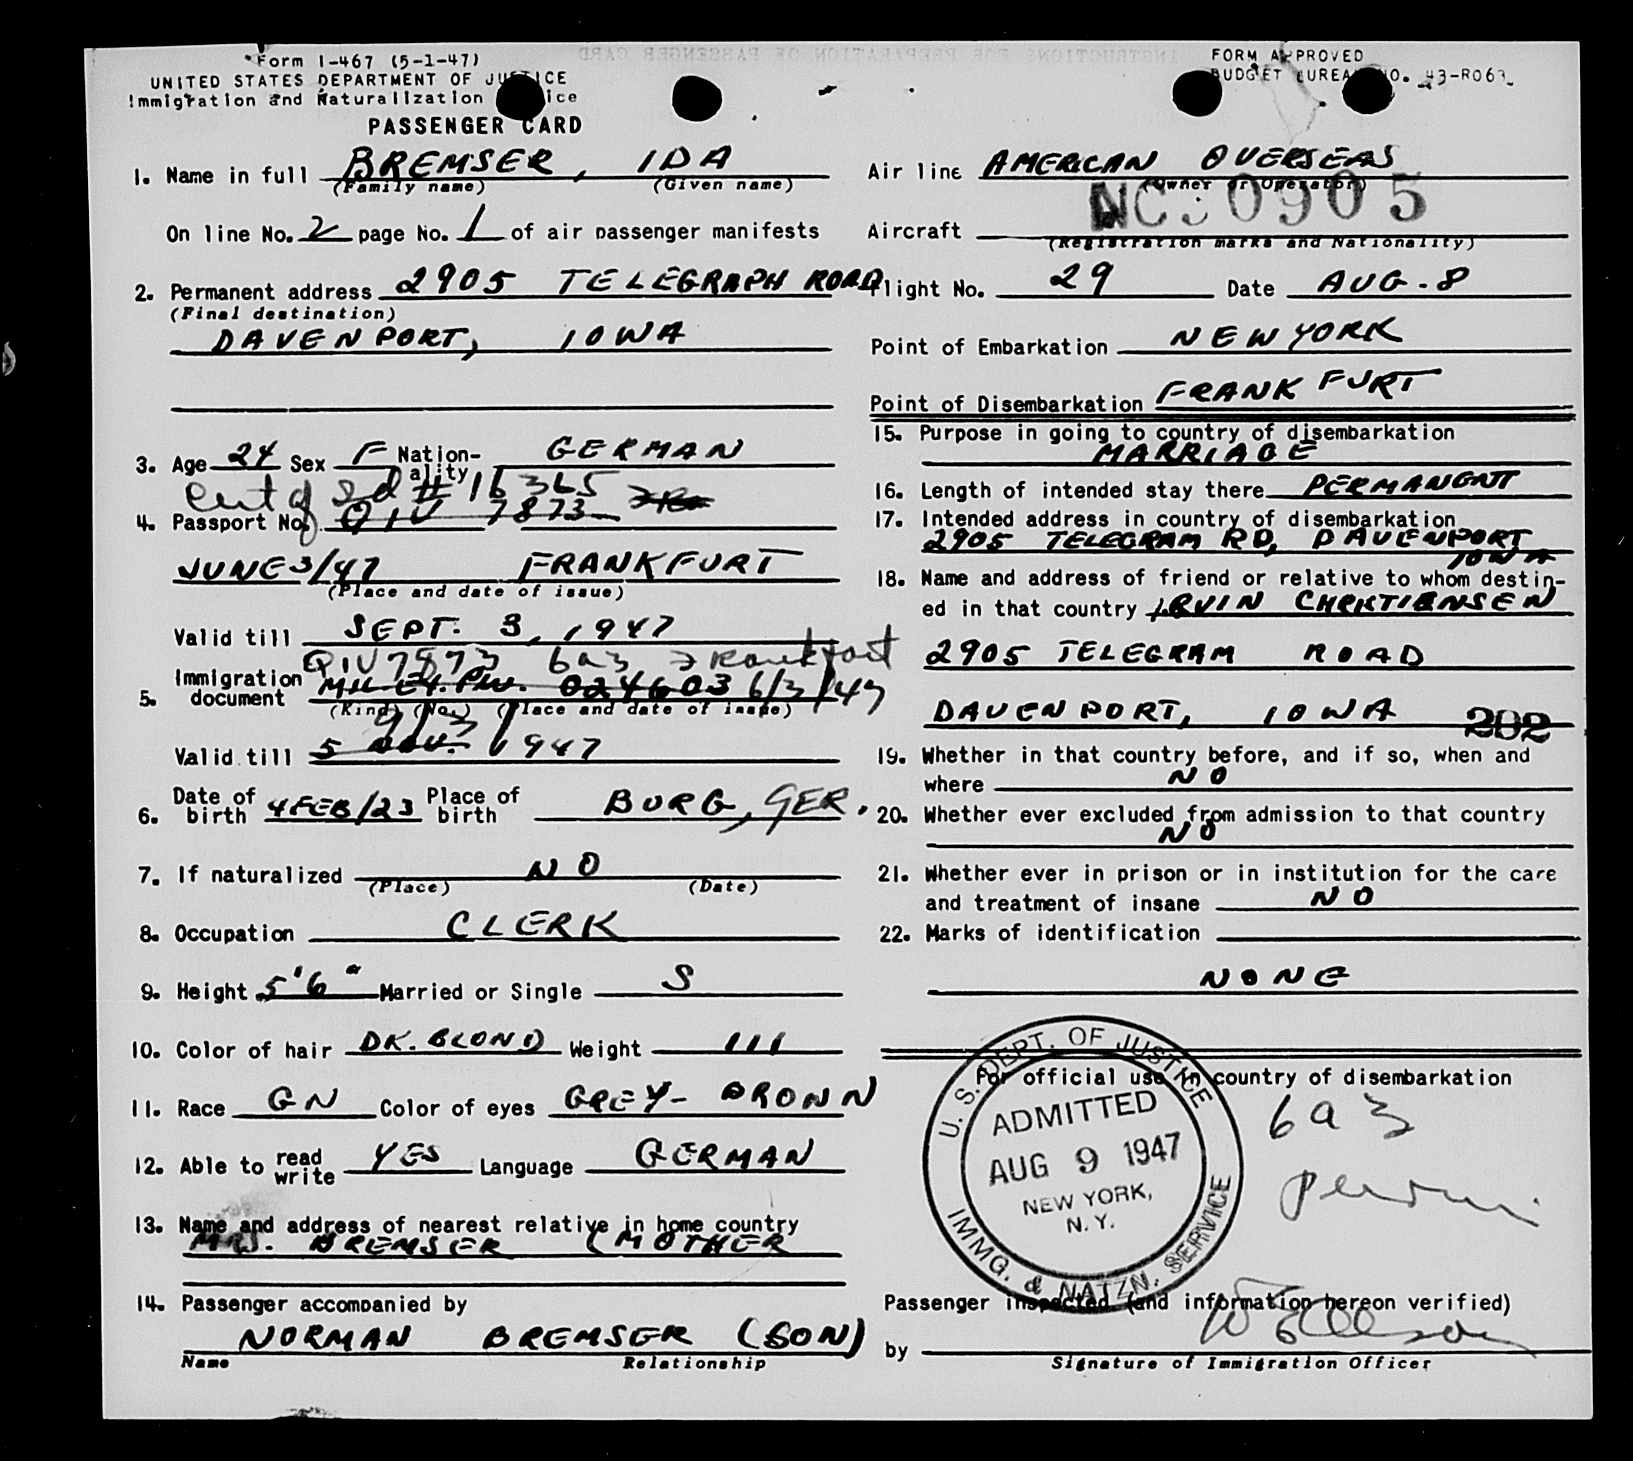 Form I-467 (5-1-47)
UNITED STATES DEPARTMENT OF JUSTICE
Immigration and Naturalization Service
PASSENGER CARD
FORM APPROVED
BUDGET BUREAU NO. 43-R063
1. Name in full BREMSER, IDA
(Family name) (Given name)
On line No. 2 page No. 1 of air passenger manifests
2. Permanent address 2905 TELEGRAPH ROAD
(Final destination)
DAVENPORT, IOWA
3. Age 24 Sex F Nation-ality GERMAN
Cert of Id # 16365
4. Passport No. QIV 7873
JUNE 3/47 FRANKFURT
(Place and date of issue)
Valid till SEPT. 3, 1947
QIV 7873 6a3 Frankfort
5. Immigration document 024603 6/3/47
(Kind) (No.) (Place and date of issue)
9/3/
Valid till 5 NOV. 1947
6. Date of birth 4 FEB/23 Place of birth BURG, GER.
7. If naturalized NO
(Place) (Date)
8. Occupation CLERK
9. Height 5'6" Married or Single S
10. Color of hair DK. BLOND Weight 111
11. Race GN Color of eyes GREY-BROWN
12. Able to read write YES Language GERMAN
13. Name and address of nearest relative in home country
MRS. BREMSER (MOTHER
14. Passenger accompanied by
NORMAN BREMSER (SON)
Name Relationship
Air line AMERICAN OVERSEAS
(Owner or Operator)
Aircraft NC 0905
(Registration marks and Nationality)
Flight No. 29 Date AUG. 8
Point of Embarkation NEW YORK
Point of Disembarkation FRANKFURT
15. Purpose in going to country of disembarkation
MARRIAGE
16. Length of intended stay there PERMANENT
17. Intended address in country of disembarkation
2905 TELEGRAM RD, DAVENPORT
IOWA
18. Name and address of friend or relative to whom destin-
ed in that country IRVIN CHRKTIENSEN
2905 TELEGRAM ROAD
DAVENPORT, IOWA 202
19. Whether in that country before, and if so, when and
where NO
20. Whether ever excluded from admission to that country
NO
21. Whether ever in prison or in institution for the care
and treatment of insane NO
22. Marks of identification
NONE
For official use in country of disembarkation
6a3
U. S. DEPT. OF JUSTICE
ADMITTED
AUG 9 1947
NEW YORK,
N. Y.
IMMG. & NATZN. SERVICE
Passenger inspected (and information hereon verified)
by
Signature of Immigration Officer